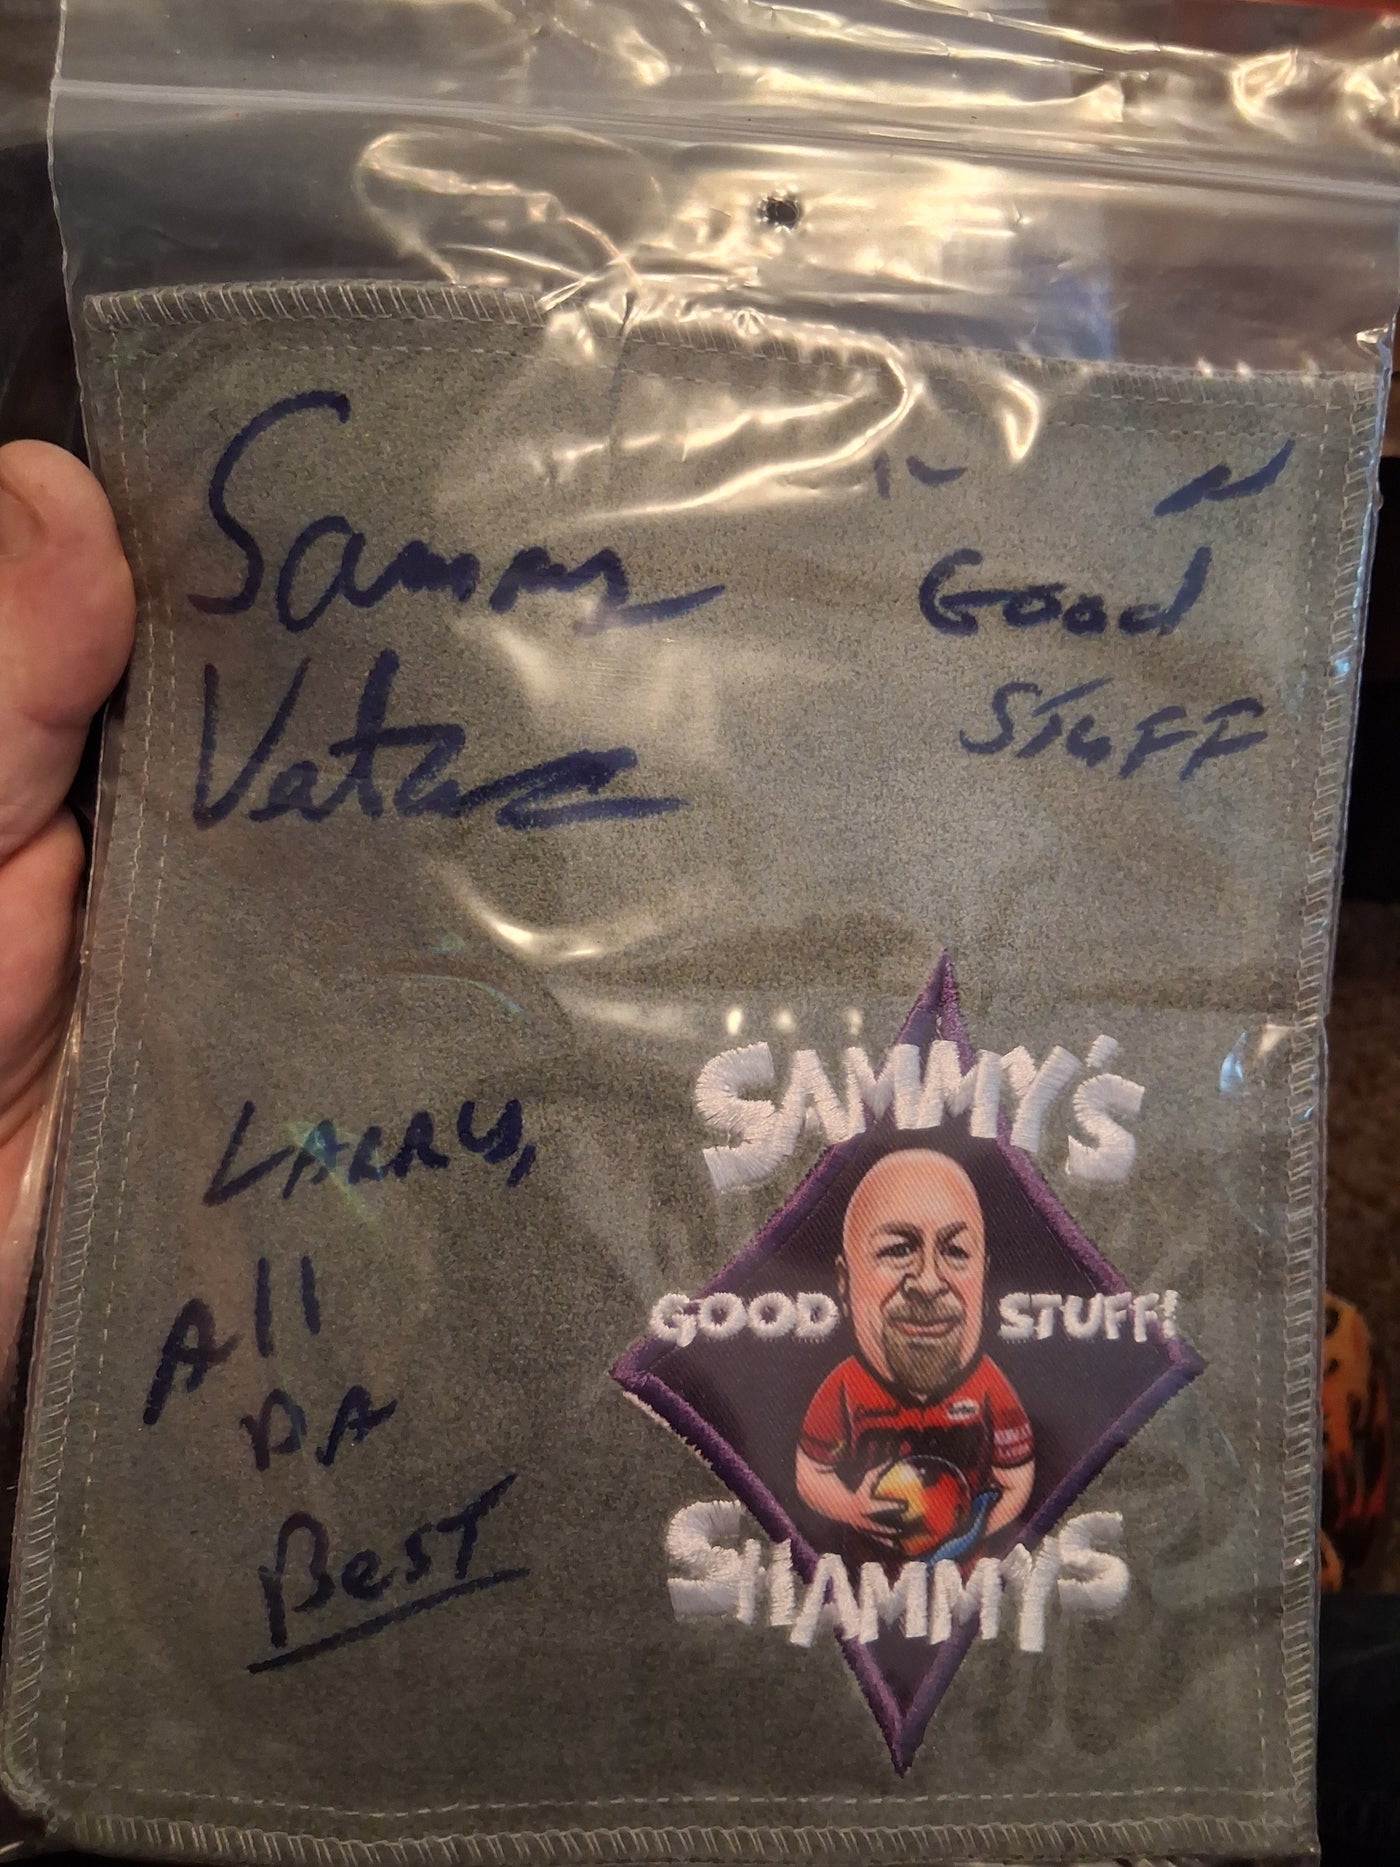 Sammy
Good
STUFF
LARRY,
All
DA
BeST
SAMMY'S
GOOD STUFF!
SHAMMYS